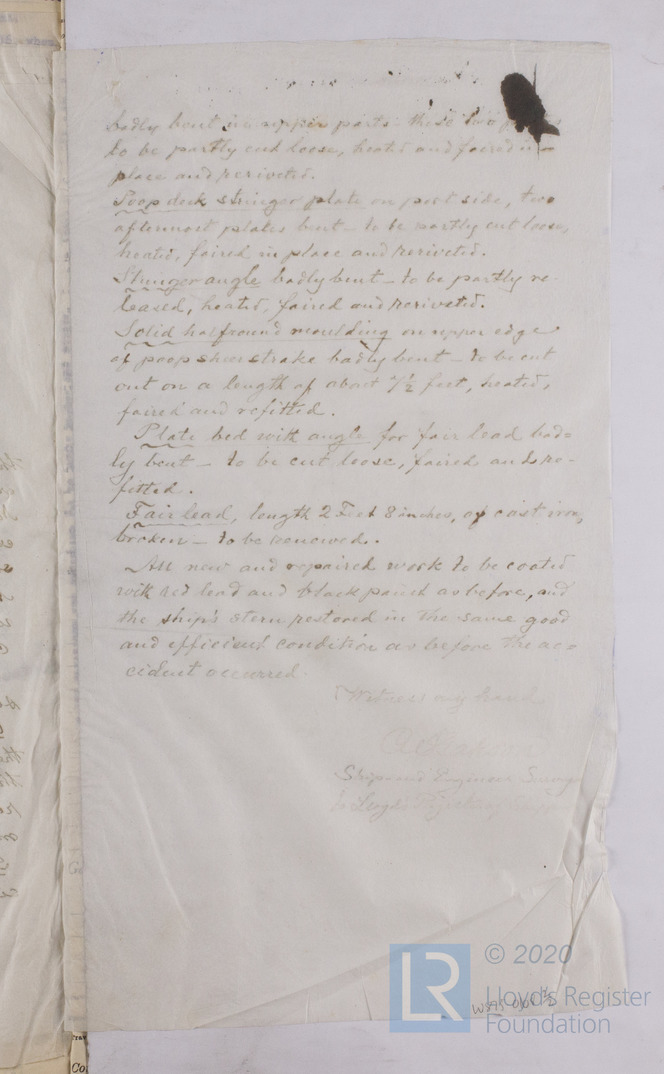 badly bent in upper parts these two
to be partly cut loose, heated and faired in
place and reriveted.
Poop deck stringer plate on port side, two
aftermost plates bent - to be partly cut loose,
heated, faired in place and reriveted.
Stringer angle badly bent - to be partly re-
leased, heated, faired and reriveted.
Solid halfround moulding on upper edge
of poop sheerstrake badly bent - to be cut
out on a length of about 7½ feet, heated,
faired and refitted.
Plate bed with angle for fair lead bad=
ly bent - to be cut loose, faired and re-
fitted.
Fairlead, length 2 Feet 8 inches, of cast iron,
broken - to be renewed.
All new and repaired work to be coated
with red lead and black paint as before, and
the ship's stern restored in the same good
and efficient condition as before the ac=
cident occurred.
Witness my hand
Ship and Engineer
to Lloyd's Register of
W895 0168 ½
LR
© 2020
Lloyd's Register
Foundation
Co